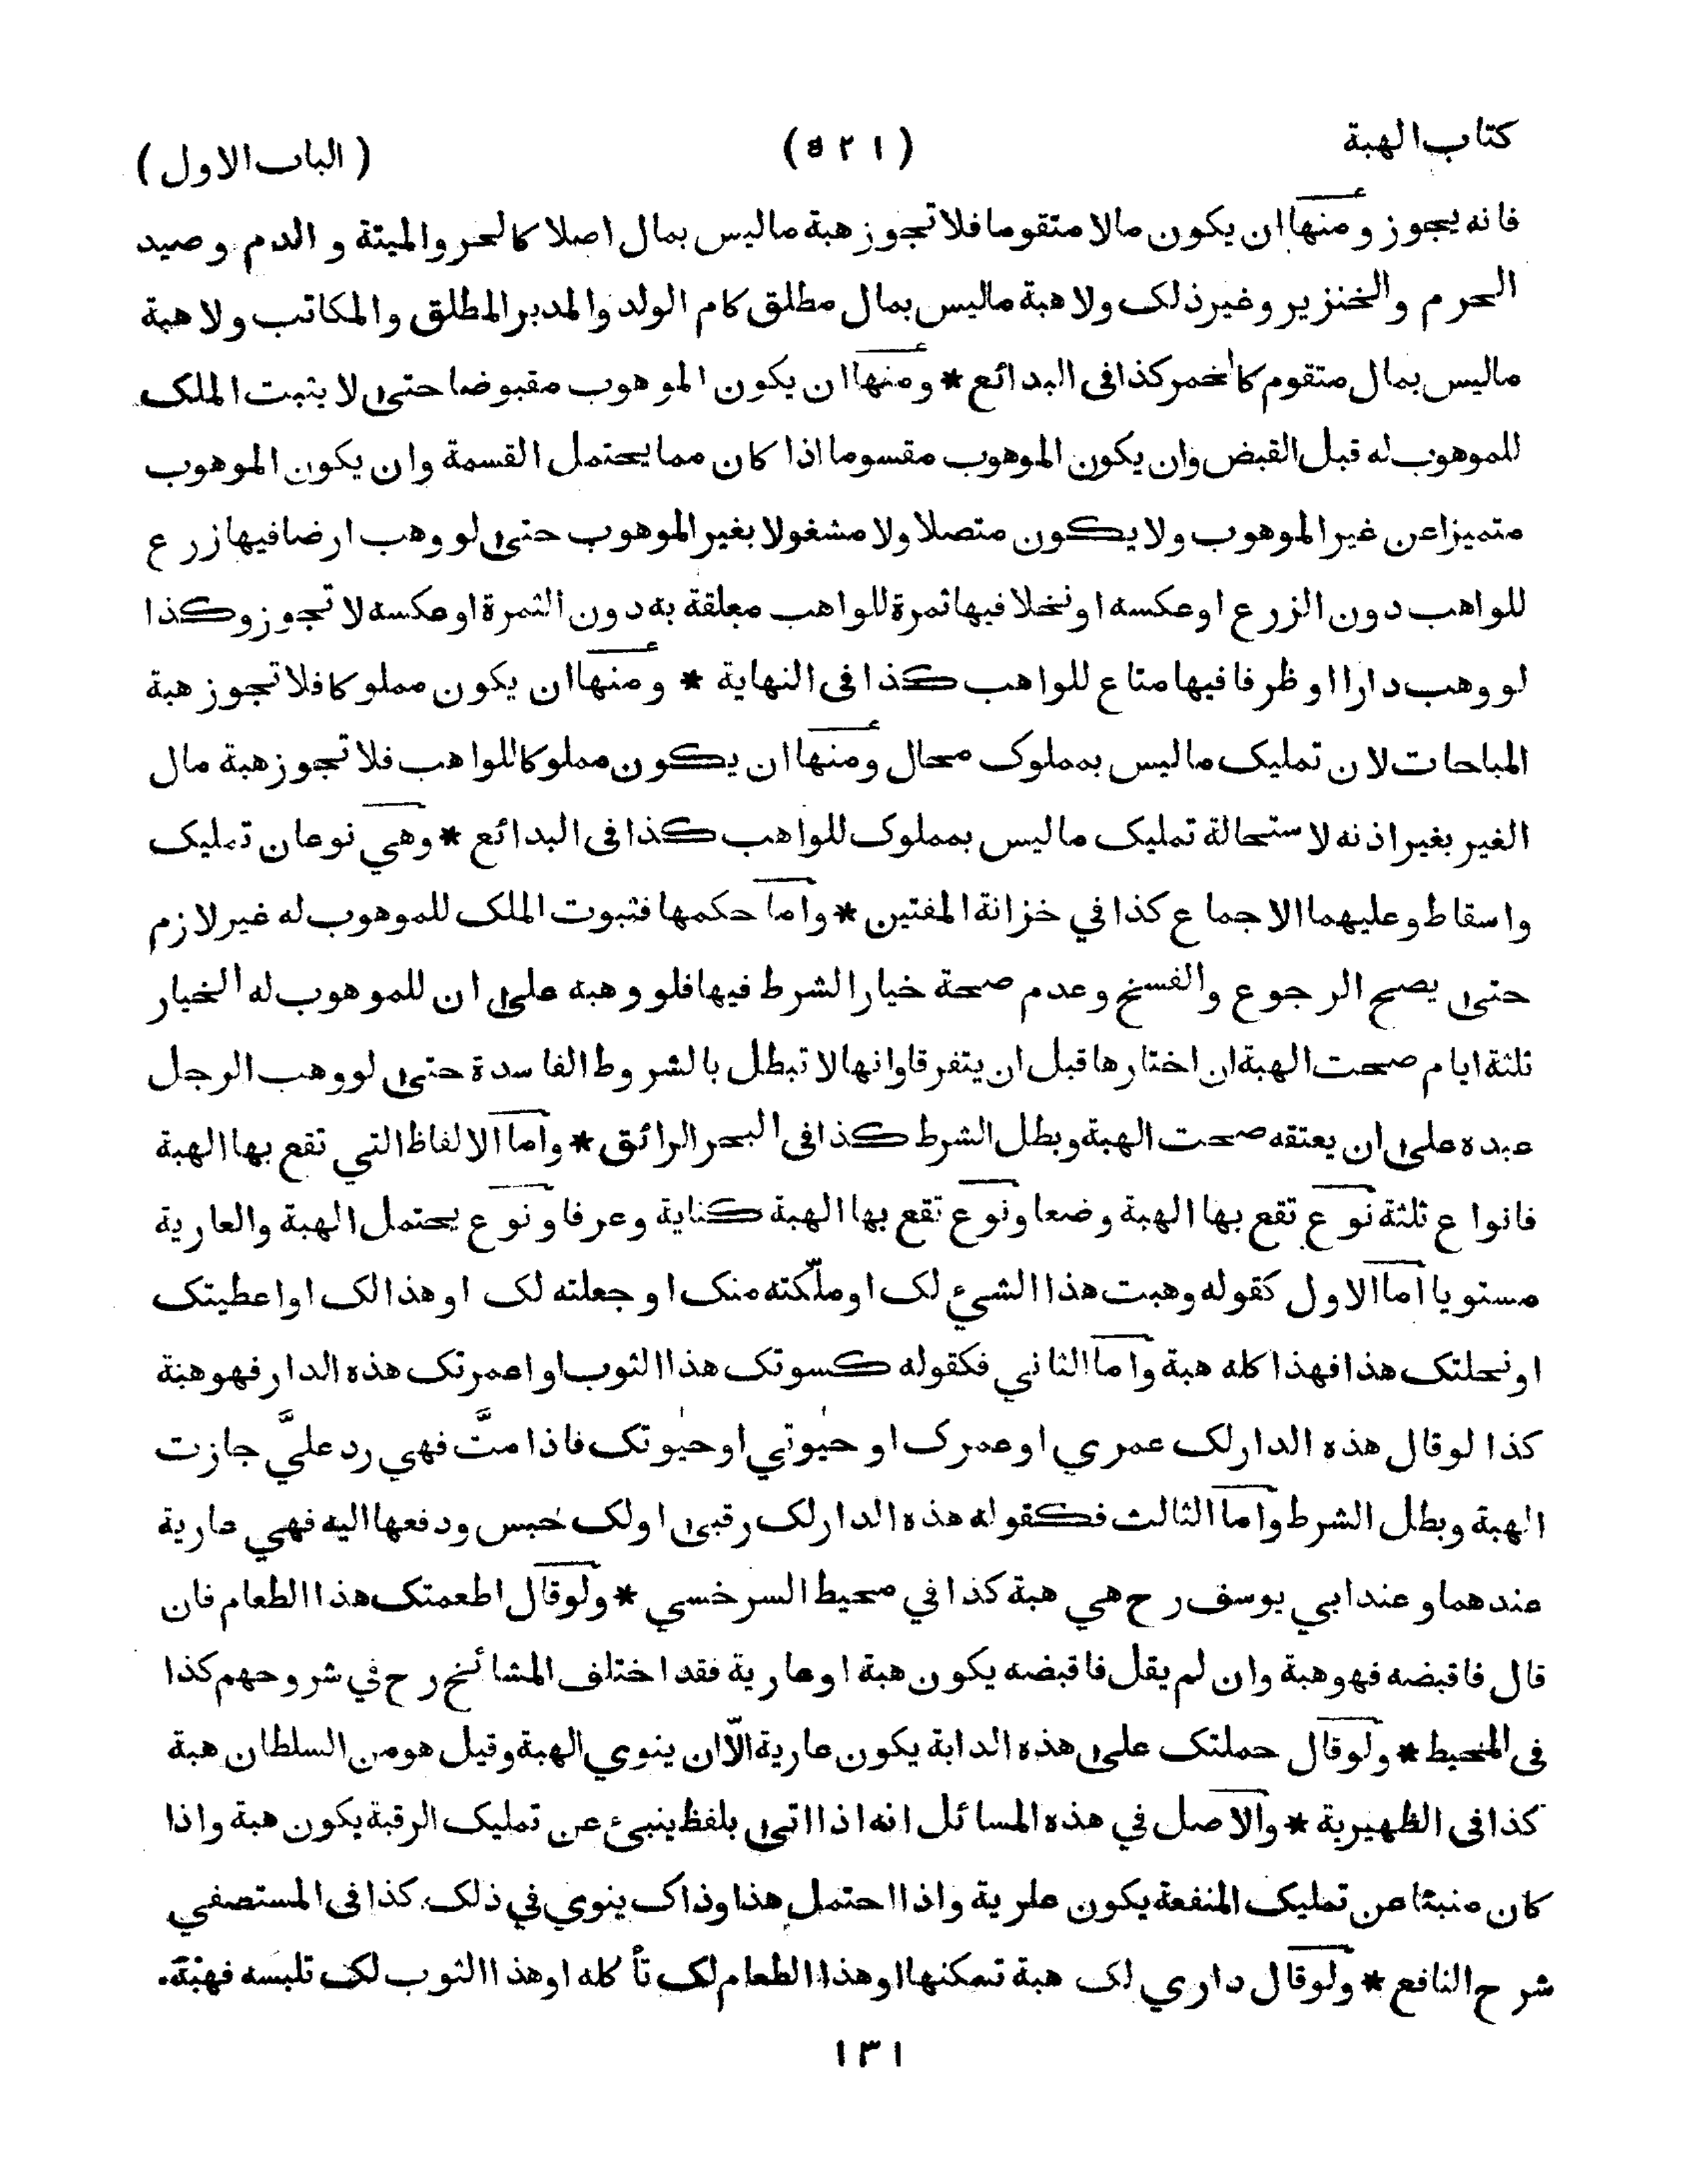 كتاب الهبة (٥٢١) (الباب الاول)
فانه يجوز ومنها ان يكون مالا متقوما فلا تجوز هبة ماليس بمال اصلا كالحر والميتة و الدم و صيد
الحرم والخنزير وغير ذلك ولا هبة ماليس بمال مطلق كام الولد والمدبر المطلق والمكاتب ولا هبة
ماليس بمال متقوم كالخمر كذا فى البدائع * ومنها ان يكون الموهوب مقبوضا حتىٰ لا يثبت الملك
للموهوب له قبل القبض وان يكون الموهوب مقسوما اذا كان مما يحتمل القسمة وان يكون الموهوب
متميزا عن غير الموهوب ولا يكون متصلا ولا مشغولا بغير الموهوب حتىٰ لو وهب ارضا فيها زرع
للواهب دون الزرع او عكسه او نخلا فيها ثمرة للواهب معلقة به دون الثمرة او عكسه لا تجوز وكذا
لو وهب دارا او ظرفا فيها متاع للواهب كذا فى النهاية * ومنها ان يكون مملوكا فلا تجوز هبة
المباحات لان تمليك ماليس بمملوك محال ومنها ان يكون مملوكا للواهب فلا تجوز هبة مال
الغير بغير اذنه لاستحالة تمليك ماليس بمملوك للواهب كذا فى البدائع * وهي نوعان تمليك
واسقاط وعليهما الاجماع كذا في خزانة المفتين * واما حكمها فثبوت الملك للموهوب له غير لازم
حتىٰ يصح الرجوع والفسخ وعدم صحة خيار الشرط فيها فلو وهبه علىٰ ان للموهوب له الخيار
ثلثة ايام صحت الهبة ان اختارها قبل ان يتفرقا وانها لا تبطل بالشروط الفاسدة حتىٰ لو وهب الرجل
عبده علىٰ ان يعتقه صحت الهبة وبطل الشرط كذا فى البحر الرائق * واما الالفاظ التي تقع بها الهبة
فانواع ثلثة نوع تقع بها الهبة وضعا ونوع تقع بها الهبة كناية وعرفا ونوع يحتمل الهبة والعارية
مستويا اما الاول كقوله وهبت هذا الشيء لك او ملّكته منك او جعلته لك او هذا لك او اعطيتك
او نحلتك هذا فهذا كله هبة واما الثاني فكقوله كسوتك هذا الثوب او اعمرتك هذه الدار فهو هبة
كذا لو قال هذه الدار لك عمري او عمرك او حيٰوتي او حيٰوتك فاذا متَّ فهي رد عليَّ جازت
الهبة وبطل الشرط واما الثالث فكقوله هذه الدار لك رقبىٰ او لك حبس ودفعها اليه فهي عارية
عندهما وعند ابي يوسف رح هي هبة كذا في محيط السرخسي * ولو قال اطعمتك هذا الطعام فان
قال فاقبضه فهو هبة وان لم يقل فاقبضه يكون هبة او عارية فقد اختلف المشائخ رح في شروحهم كذا
فى المحيط * ولو قال حملتك علىٰ هذه الدابة يكون عارية الّا ان ينوي الهبة وقيل هو من السلطان هبة
كذا فى الظهيرية * والاصل في هذه المسائل انه اذا اتىٰ بلفظ ينبئ عن تمليك الرقبة يكون هبة واذا
كان منبئا عن تمليك المنفعة يكون عارية واذا احتمل هذا وذاك ينوي في ذلك كذا فى المستصفي
شرح النافع * ولو قال داري لك هبة تسكنها او هذا الطعام لك تأكله او هذا الثوب لك تلبسه فهبة
١٣١